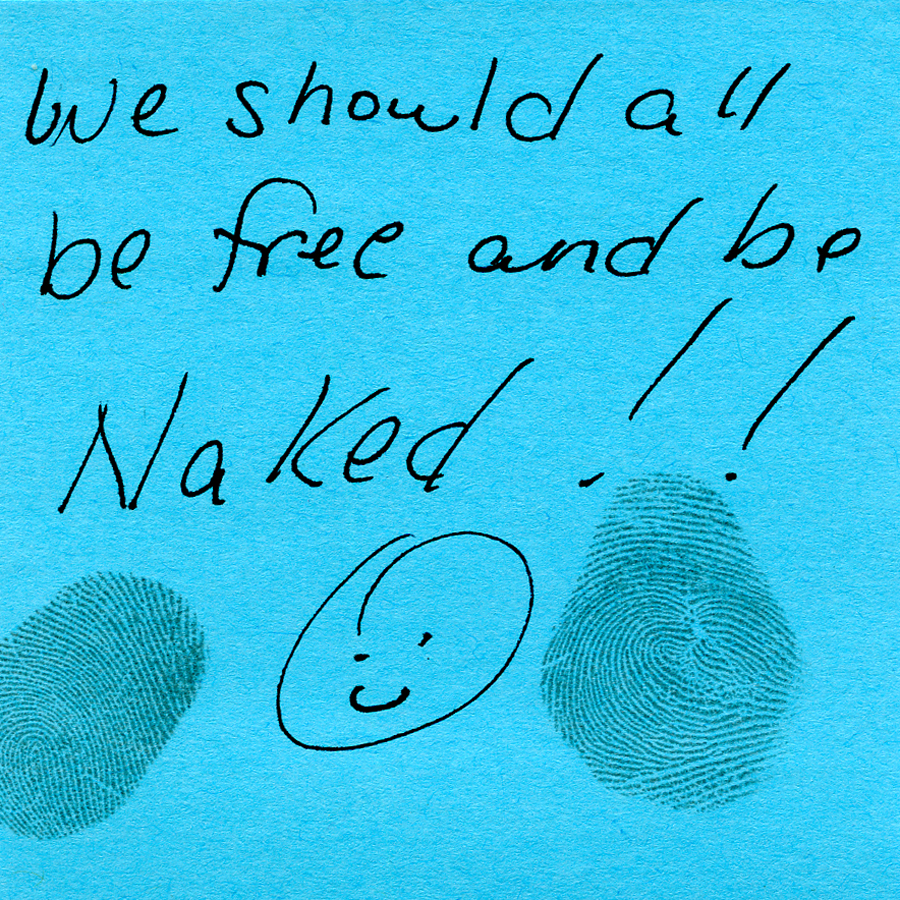 We should all
be free and be
Naked!!